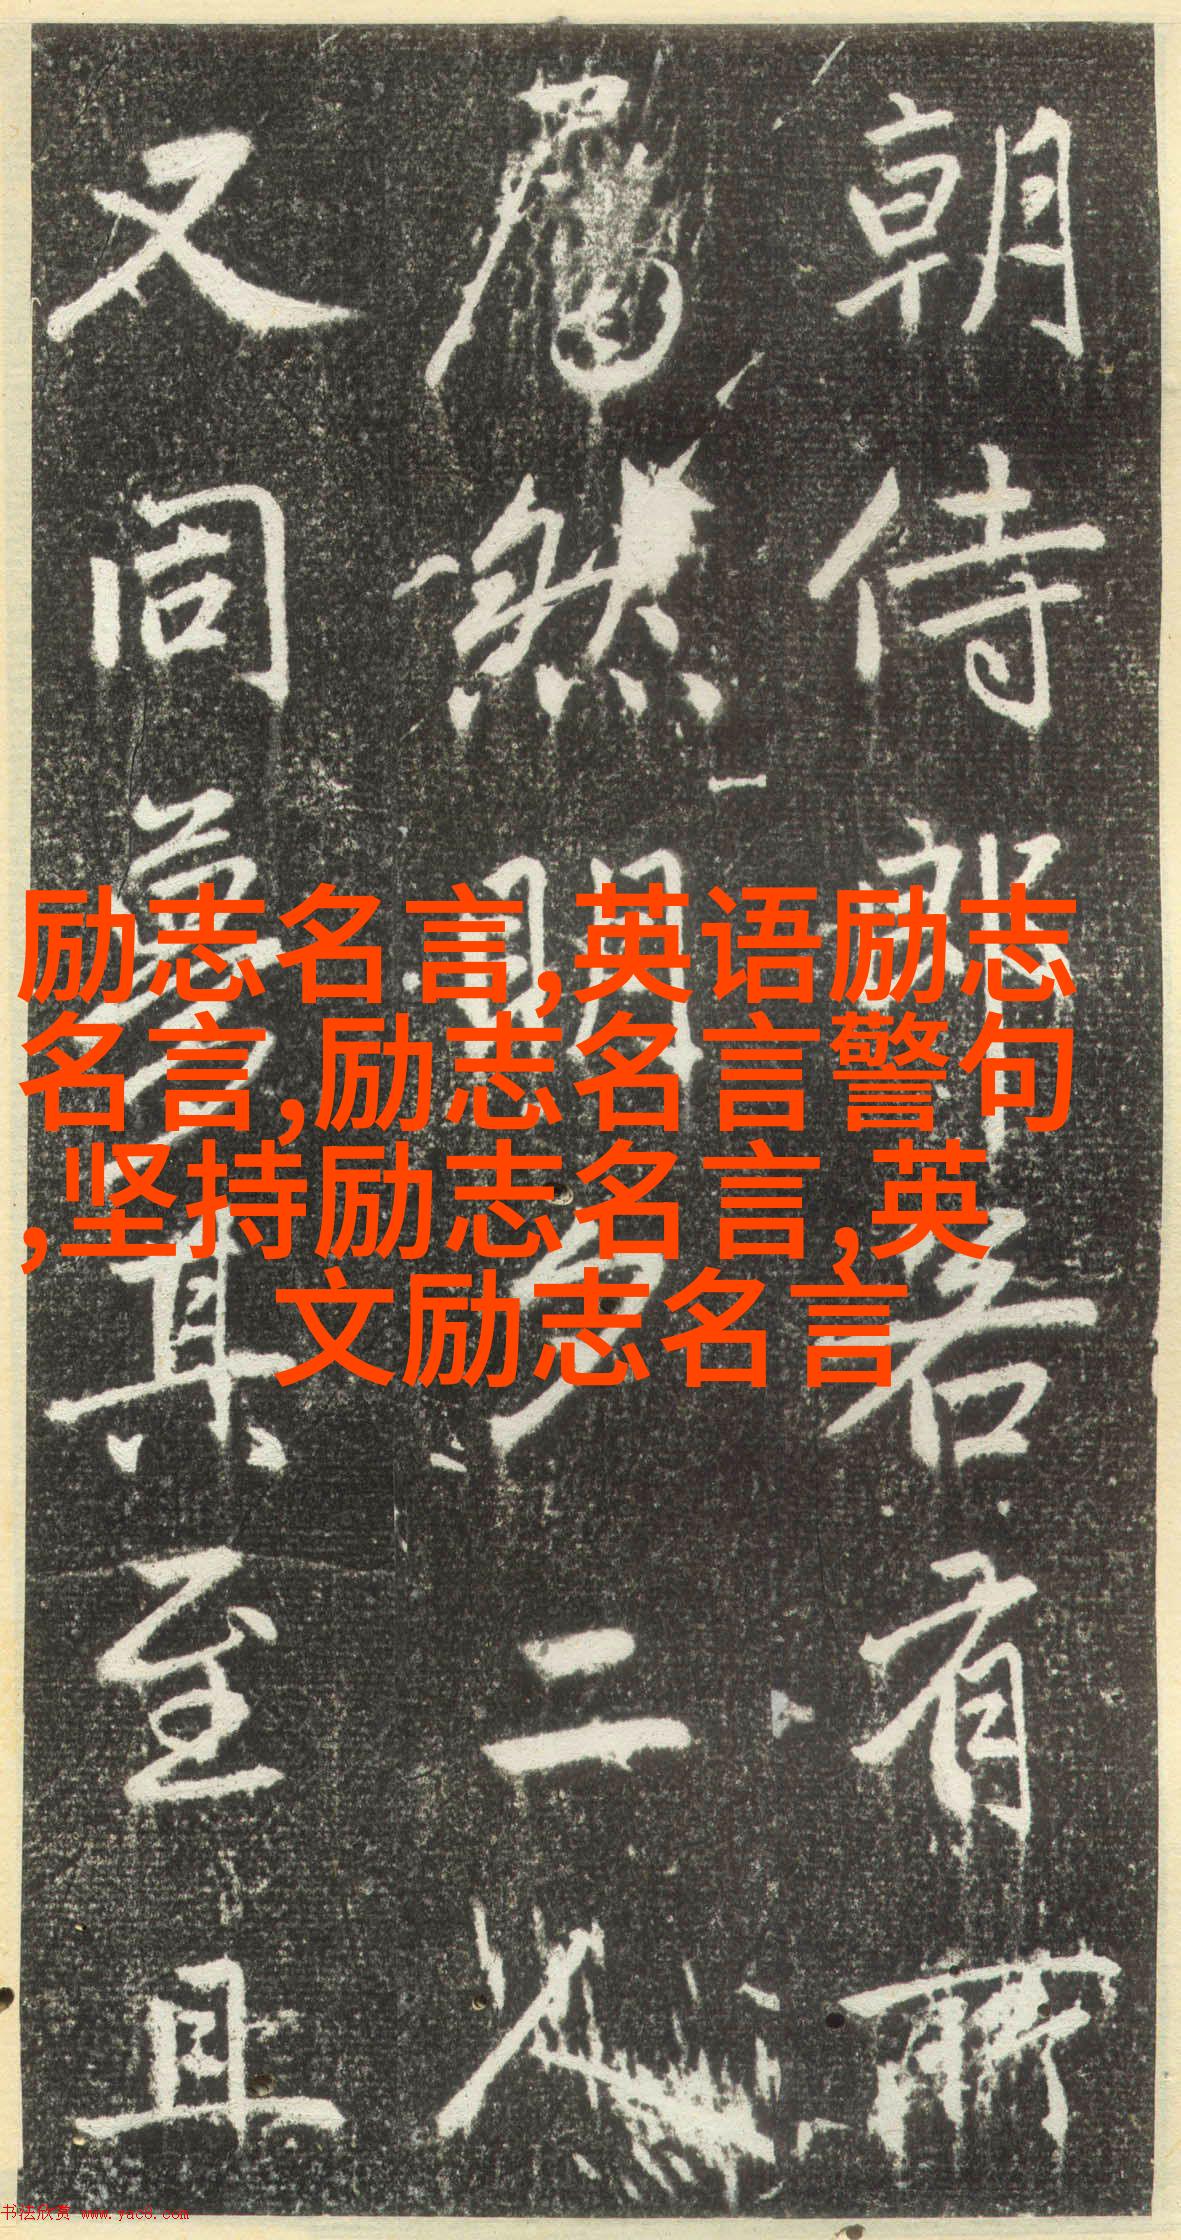 朝侍郎若有所
然明二人
又同夢其至且
励志名言,英语励志
名言,励志名言警句
,坚持励志名言,英
文励志名言
书法欣赏 www.yac8.com